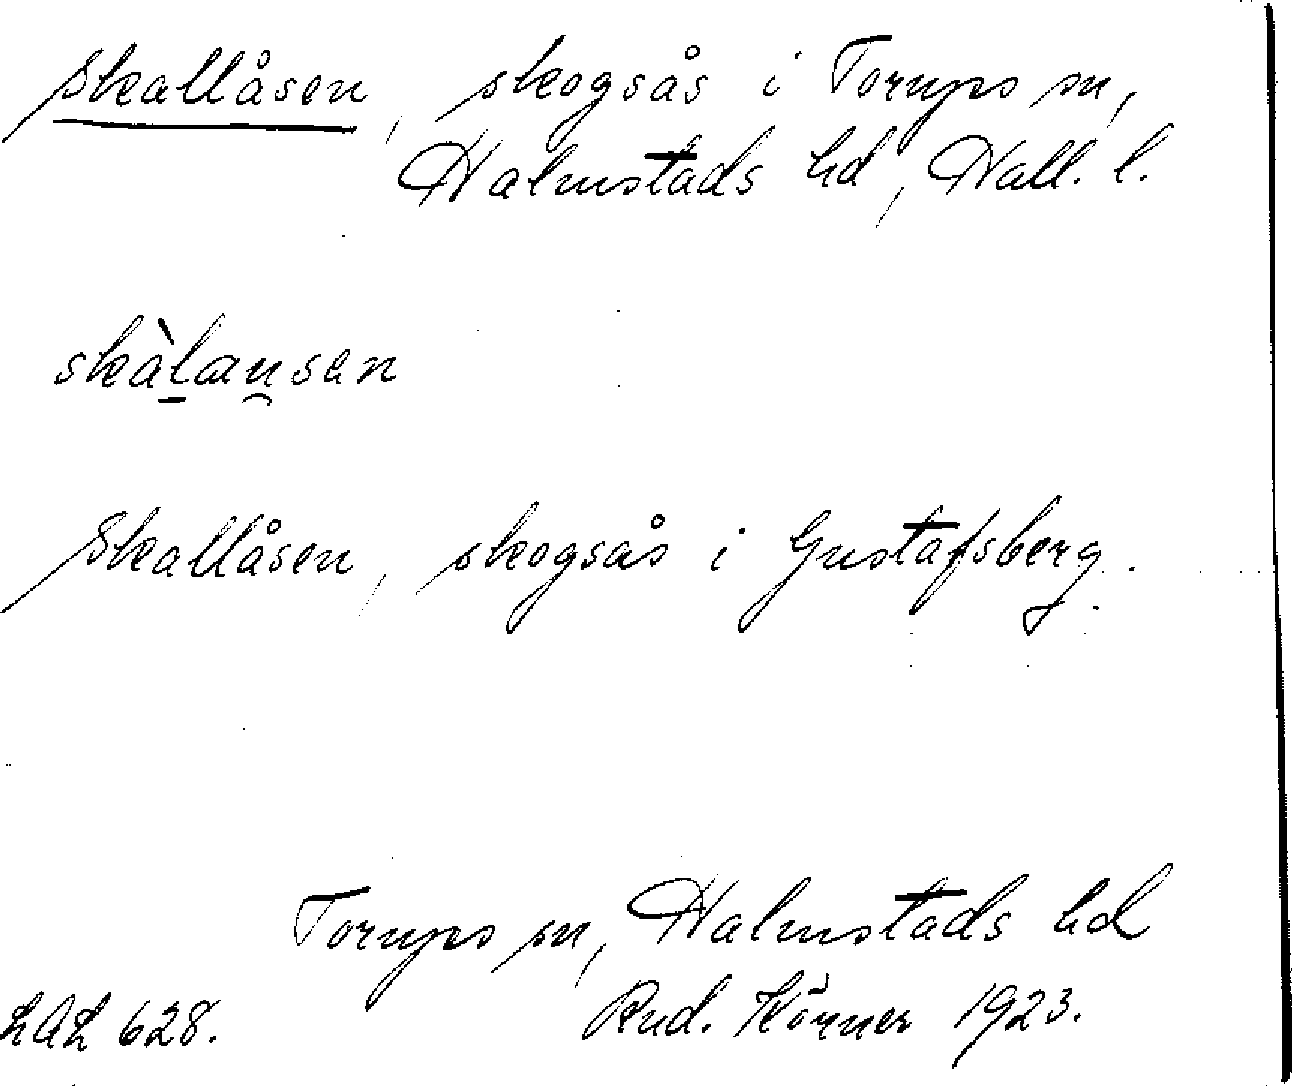 Skallåsen, skogsås i Torups sn,
Halmstads hd, Hall. l.
skàlansen
Skallåsen, skogsås i Gustafsberg.
Torups sn, Halmstads hd
LAL 628. Rud. Körner 1923.